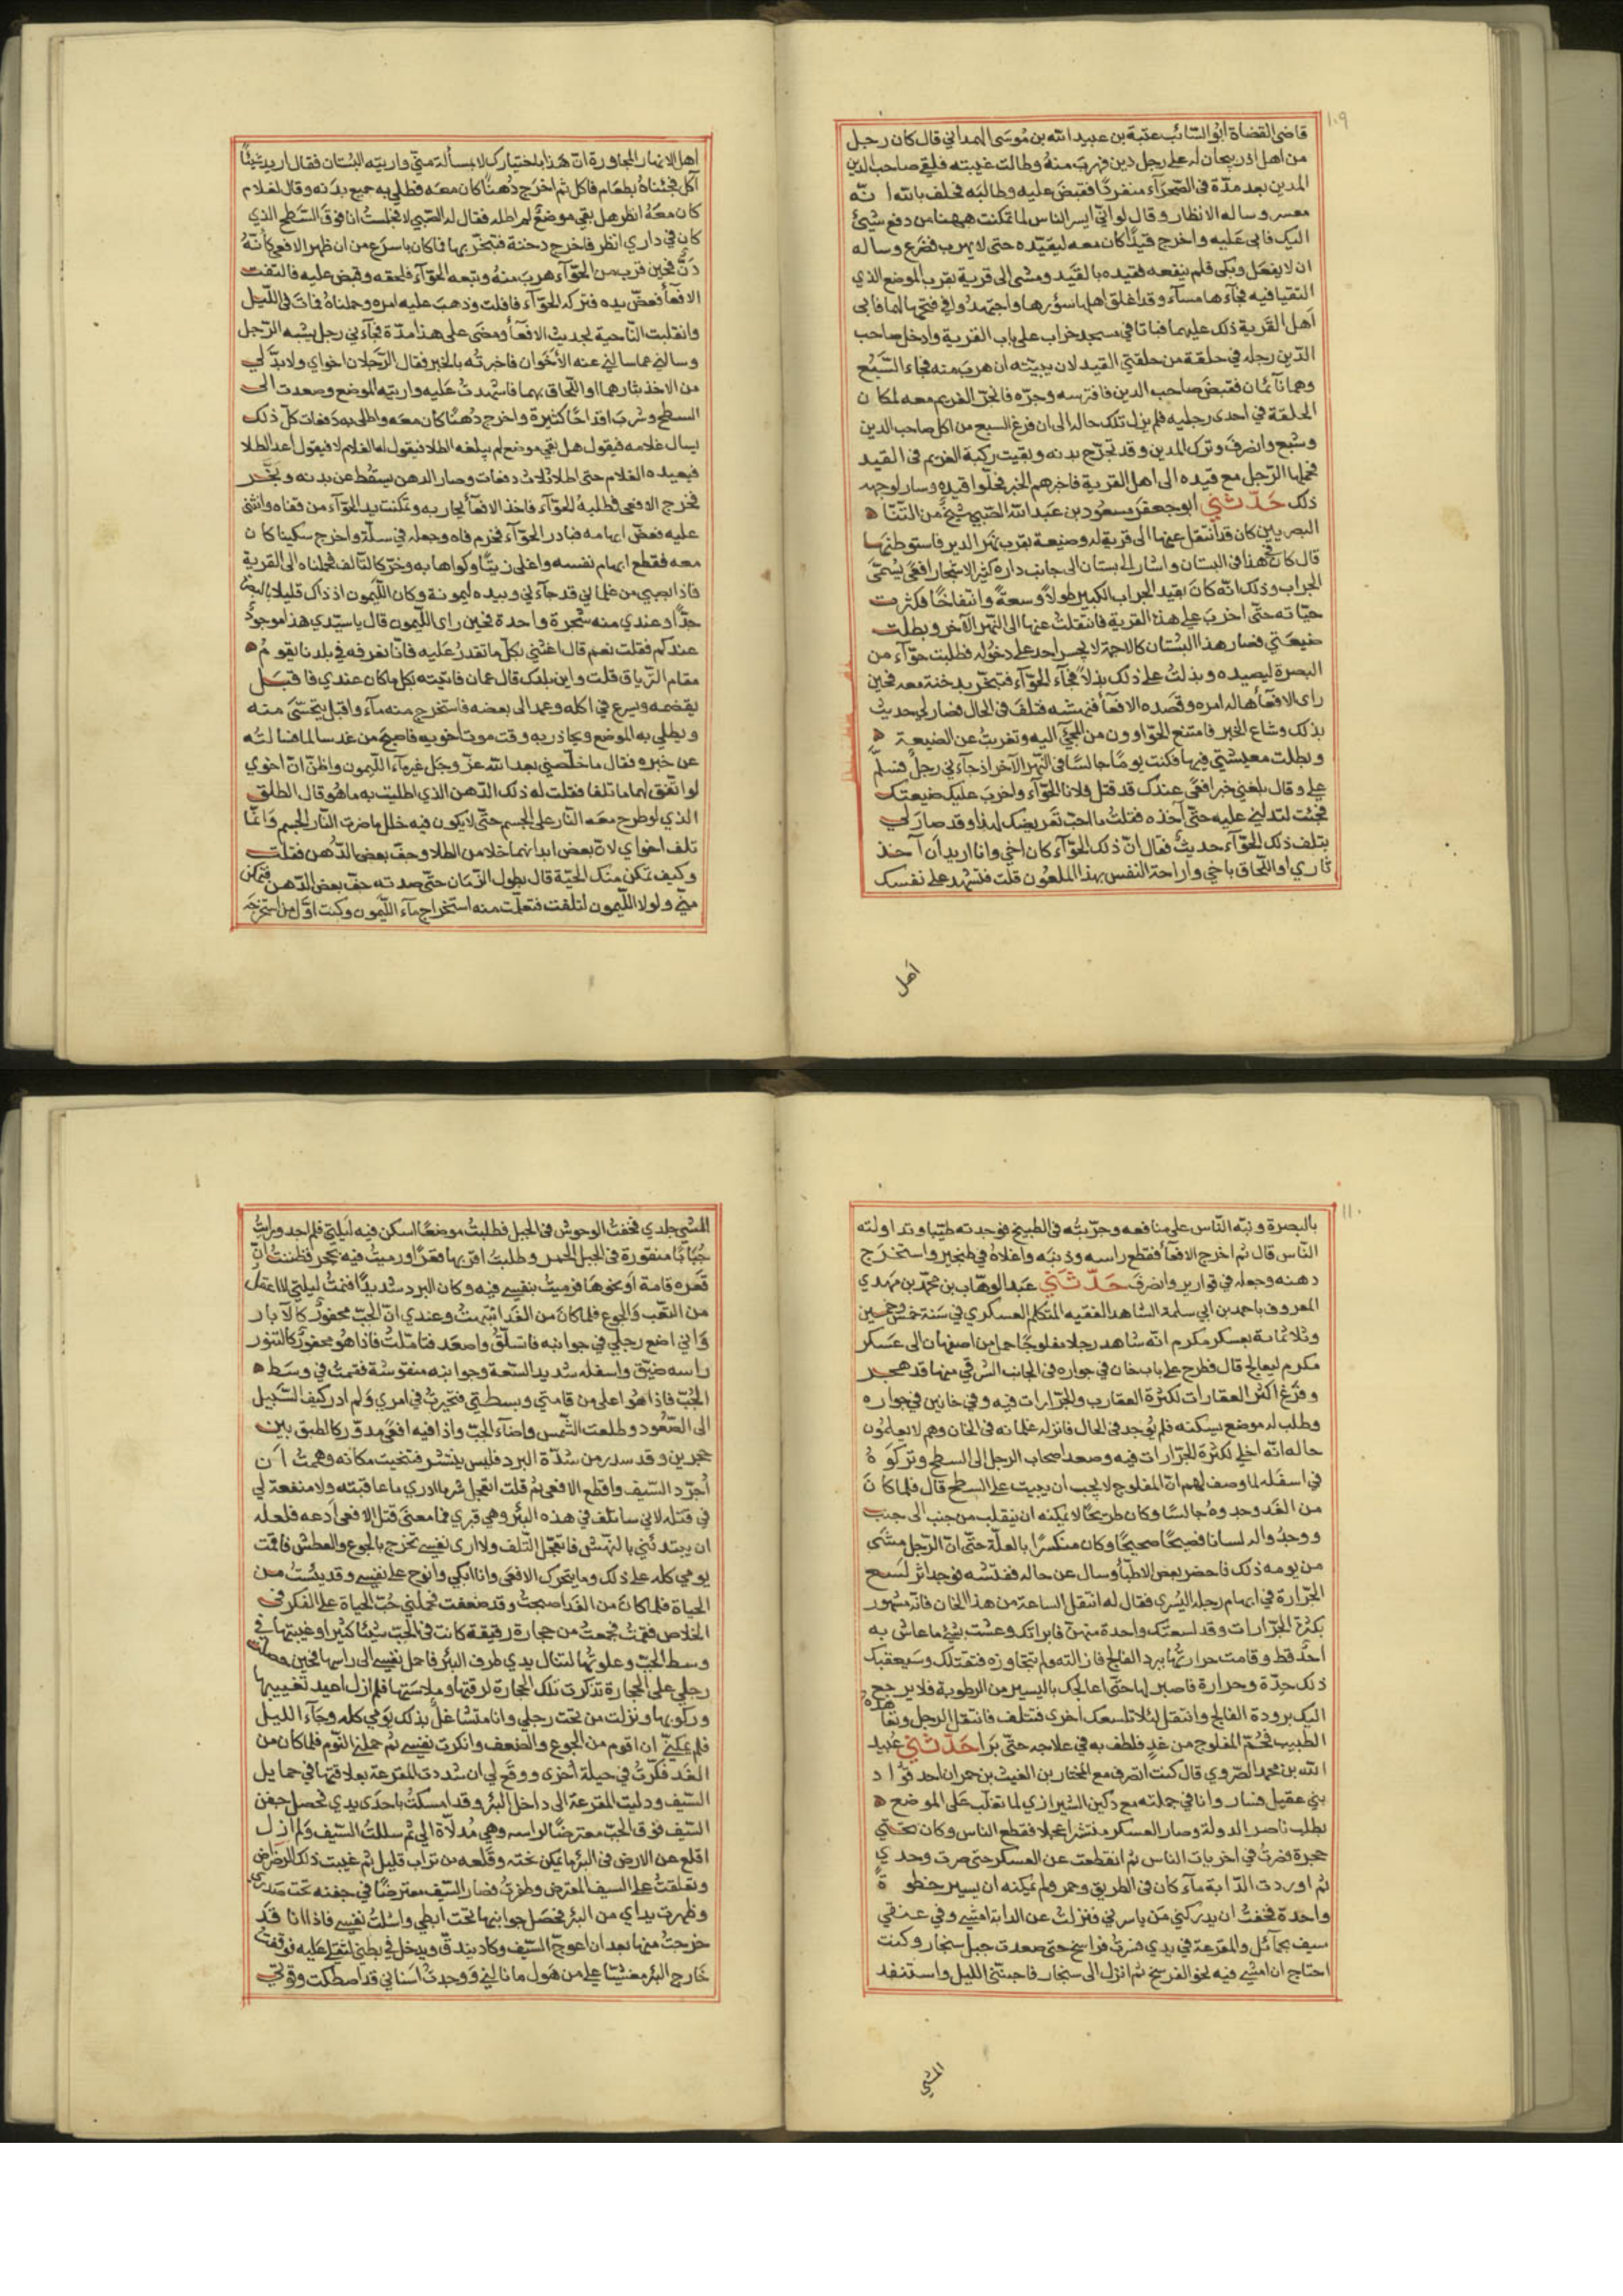 ١٠٩
قاضي القضاة ابو السائب عتبة بن عبيد الله بن موسى الهمداني قال كان رجل
من اهل اذربيجان له على رجل دين فهرب منه وطالت غيبته فلقي صاحب الدين
المدين بعد مدة في الصحرآء منفردا فقبض عليه وطالبه فحلف بالله انه
معسر وساله الانظار وقال لو اني ايسر الناس لما تمكنت ههنا من دفع شيئ
اليك فابى عليه واخرج قيدا كان معه ليقيده حتى لا يهرب فضرع وساله
ان لا يفعل وبكى فلم ينفعه فقيده بالقيد ومشى الى قرية بقرب الموضع الذي
التقيا فيه فجآءها مسآء وقد اغلق اهلها سورها واجتهدوا في فتحها لهما فابى
اهل القرية ذلك عليهما فباتا في مسجد خراب على باب القرية وادخل صاحب
الدين رجله في حلقة من حلقتي القيد لان يبيته ان هرب منه فجاء السبع
وهما نآئمان فقبض صاحب الدين فافترسه وجره فانجر الغريم معه لمكان
الحلقة في احدى رجليه فلم يزل تلك حاله الى ان فرغ السبع من اكل صاحب الدين
وشبع وانصرف وترك المدين وقد تجرح بدنه وبقيت ركبة الغريم في القيد
فحملها الرجل مع قيده الى اهل القرية فاخبرهم الخبر فحلوا قيده وسار لوجهه
ذلك حدثني ابو جعفر مسعود بن عبد الله الضبي شيخ من التنآء
البصريين كان قد انتقل عنها الى قرية له وضيعة بقرب نهر الدير فاستوطنها
قال كان في هذا في البستان واشار الى بستان الى جانب داره كثير الاشجار افعى يسمى
الجراب وذلك انه كان بقيد الجراب الكبير طولا وسعة وانتفاخا فكثرت
حياته حتى اخرب على هذه القرية فانتقلت عنها الى النهر الآخر وبطلت
ضيعتي فصار هذا البستان كالاجمة لا يجسر احد على دخوله فطلبت حوآء من
البصرة ليصيده وبذلت على ذلك بذلا فجآء الحوآء فتبخر بدخنة معه فحين
راى الافعا هاله امره وقصده الافعا فنهشه فتلف في الحال فصار لي حديث
بذلك وشاع الخبر فامتنع الحواوون من المجئ اليه وتغربت عن الضيعة
وبطلت معيشتي فيها فكنت يوما جالسا في النهر الآخر اذ جآءني رجل فسلم
علي وقال بلغني خبر افعى عندك قد قتل فلانا الحوآء واخرب عليك ضيعتك
فجئت لتدلني عليه حتى آخذه فقلت ما احب تعريضك لهذا وقد صار لي
بتلف ذلك الحوآء حديث فقال ان ذلك الحوآء كان اخي وانا اريد ان آخذ
ثاري او اللحاق باخي واراحة النفس بهذا الملعون قلت فتشهد على نفسك
اهل
اهل الانهار المجاورة ان هذا باختيارك لا بمسألة مني واريته البستان فقال اريد شيئا
آكل فجئناه بطعام فاكل ثم اخرج دهنا كان معه فطلي به جميع بدنه وقال لغلام
كان معه انظر هل بقي موضع لم اطله فقال له الصبي لا فجلست انا فوق السطح الذي
كان في داري انظر فاخرج دخنة فتبخر بها فاكان باسرع من ان ظهر الافعى كأنه
دن فحين قرب من الحوآء هرب منه وتبعه الحوآء فلحقه وقبض عليه فالتفت
الافعا فعض يده فتركه الحوآء فافلت وذهب عليه امره وحملناه فمات في الليل
وانقلبت الناحية بحديث الافعا ومضى على هذا مدة فجآءني رجل يشبه الرجل
وسالني عما سالني عنه الأخوان فاخبرته بالخبر فقال الرجلان اخواي ولا بد لي
من الاخذ بثارهما او اللحاق بهما فاشهدت عليه واريته الموضع وصعدت الى
السطح وشرب اقداحا كثيرة واخرج دهنا كان معه واطلى به دفعات كل ذلك
يسال غلامه فيقول هل بقي موضع لم يبلغه الطلا فيقول له الغلام لا فيقول اعد الطلا
فيعيده الغلام حتى اطلا ثلاث دفعات وصار الدهن يسقط عن بدنه وتبخر
فخرج الافعى فطلبه الحوآء فاخذ الافعا يحاربه وتمكنت يد الحوآء من قفاه وانثنى
عليه فعض ابهامه فبادر الحوآء فخرم فاه وجعله في سلة واخرج سكينا كان
معه فقطع ابهام نفسه واغلى زيتا وكواها به وخر كالتالف فحملناه الى القرية
فاذا بصبي من غلماني قد جآءني وبيده ليمونة وكان الليمون اذ ذاك قليلا بالبصرة
جدا وعندي منه شجرة واحدة فحين راى الليمون قال يا سيدي هذا موجود
عندكم فقلت نعم قال اغثني بكل ما تقدر عليه فانا نعرفه في بلدنا يقوم
مقام الترياق قلت واين بلدك قال عمان فاتيته بكل ما كان عندي فاقبل
يقضمه ويسرع في اكله وعمد الى بعضه فاستخرج منه مآء واقبل يتحسى منه
ويطلي به الموضع ويحاذر به وقت موت اخويه فاصبح من غد سالما فسالته
عن خبره فقال ما خلصني بعد الله عز وجل غير مآء الليمون واظن ان اخوي
لو اتفق لهما ما تلفا فقلت له ذلك الدهن الذي اطليت به ما هو قال الطلق
الذي لو طرح معه النار على الجسم حتى لا يكون فيه خلل ما ضرت النار الجسم وانما
تلف اخواي لان بعض ابدانهما خلا من الطلا وجف بعض الدهن فقلت
وكيف تمكن منك الحية قال بطول الزمان حتى صدته جف بعض الدهن فتمكن
مني ولولا الليمون لتلفت فتعلمت منه استخراج مآء الليمون وكنت اول من استخرجه
١١٠
بالبصرة ونبه الناس على منافعه وجربته في الطبيخ فوجدته طيبا وتداولته
الناس قال ثم اخرج الافعا فقطع راسه وذنبه واغلاه في طنجير واستخرج
دهنه وجعله في قوارير وانصرف حدثني عبد الوهاب بن محمد بن مهدي
المعروف باحمد بن ابي سلمة الشاهد الفقيه المتكلم العسكري في سنة خمس وخمسين
وثلاثماية بعسكر مكرم انه شاهد رجلا مفلوجا حمل من اصفهان الى عسكر
مكرم ليعالج قال فطرح على باب خان في جواره في الجانب الشرقي منها قد هجر
وفرغ اكثر العقارات لكثرة العقارب والجرارات فيه وفي خانين في جواره
وطلب له موضع يسكنه فلم يوجد في الحال فانزله غلمانه في الخان وهم لا يعلمون
حاله انه اخلي لكثرة الجرارات فيه وصعد اصحاب الرجل الى السطح وتركوه
في اسفله لما وصف لهم ان المفلوج لا يجب ان يبيت على السطح قال فلما كان
من الغد وجدوه جالسا وكان طريحا لا يمكنه ان ينقلب من جنب الى جنب
ووجدوا له لسانا فصيحا صحيحا وكان منكسرا بالعلة حتى ان الرجل مشى
من يومه ذلك فاحضر بعض الاطبآء وسال عن حاله ففتشه فوجد اثر لسع
الجرارة في ابهام رجله اليسرى فقال له انتقل الساعة من هذا الخان فانه مشهور
بكثرة الجرارات وقد لسعتك واحدة منهن فابراتك وعشت بشئ ما عاش به
احد قط وقامت حرارتها ببرد الفالج فازالته ولم تتجاوزه فتقتلك وسيعقبك
ذلك حدة وحرارة فاصبر لها حتى اعالجك باليسير من الرطوبة فلا يرجع
اليك برودة الفالج وانتقل لئلا تلسعك اخرى فتتلف فانتقل الرجل وتعاهده
الطبيب فحم المفلوج من غد فلطف به في علاجه حتى برا حدثني عبيد
الله بن محمد الصروي قال كنت اتصرف مع المختار بن الغيث بن حمران احد قواد
بني عقيل فسار وانا في جملته مع دكين الشيرازي لما تغلب على الموضع
بطلب ناصر الدولة وصار العسكر منتشرا عجلا فقطع الناس وكان تحتي
حجرة فصرت في اخريات الناس ثم انقطعت عن العسكر حتى صرت وحدي
ثم اوردت الدابة مآء كان في الطريق وحمر ولم يمكنه ان يسير خطوة
واحدة فخفت ان يدركني من ياسرني فنزلت عن الدابة امشي وفي عنقي
سيف بحمائل والمقرعة في يدي فسرت فراسخ حتى صعدت جبل سنجار وكنت
احتاج ان امشي فيه نحو الفرسخ ثم انزل الى سنجار فاجنني الليل واستنفد
المشي
المشي جلدي فخفت الوحوش في الجبل فطلبت موضعا اسكن فيه ليلتي فلم اجد ورايت
جبابا منقورة في الجبل وطلبت اقربها قعرا ورميت فيه بحجر فظننت ان
قعره قامة او نحوها فرميت بنفسي فيه وكان البرد شديدا فنمت ليلتي لا اعقل
من التعب والجوع فلما كان من الغد انتبهت وعندي ان الجب محفور كالآبار
واني اضع رجلي في جوانبه فاتسلق واصعد فتاملت فاذا هو محفور كالتنور
راسه ضيق واسفله شديد السعة وجوانبه منقوشة فقمت في وسط
الجب فاذا هو اعلى من قامتي وبسطتي فتحيرت في امري ولم ادر كيف السبيل
الى الصعود وطلعت الشمس واضآء الجب واذا فيه افعى مدور كالطبق بين
حجرين وقد سدر من شدة البرد فليس ينتشر فتنحيت مكانه وهممت ان
اجرد السيف واقطع الافعى ثم قلت اتعجل شرا لا ادري ما عاقبته ولا منفعة لي
في قتله لاني ساتلف في هذه البئر وهي قبري فما معنى قتل الافعى ادعه فلعله
ان يبتدئني بالنهش فاتعجل التلف ولا ارى نفسي تخرج بالجوع والعطش فاقمت
يومي كله على ذلك وما يتحرك الافعى وانا ابكي وانوح على نفسي وقد يئست من
الحياة فلما كان من الغد اصبحت وقد ضعفت فحملني حب الحياة على الفكر في
الخلاص فقمت فجمعت من حجارة رقيقة كانت في الجب شيئا كثيرا وغيبتها في
وسط الجب وعلوتها لتنال يدي طرف البئر فاحمل نفسي الى راسها فحين حصلت
رجلي على الحجارة تذكرت تلك الحجارة لرقتها وملاستها فلم ازل اعيد تغييبها
وركوبها ونزلت من تحت رجلي وانا متشاغل بذلك يومي كله وجآء الليل
فلم يمكني ان اقوم من الجوع والضعف وانكرت نفسي ثم حملني النوم فلما كان من
الغد فكرت في حيلة اخرى ووقع لي ان شددت المقرعة بعلاقتها في حمايل
السيف ودليت المقرعة الى داخل البئر وقد امسكت باحدى يدي فحصل جفن
السيف فوق الجب معترضا لراسه وهي مدلاة الي ثم سللت السيف ولم ازل
اقلع من الارض في البئر ما يمكن نحته وقلعه من تراب قليل ثم غيبت ذلك الرضراض
وتعلقت على السيف المعترض وطفرت فصار السيف معترضا في جفنه تحت صدري
وظهرت يداي من البئر فحصل جوانبها تحت ابطي واشلت نفسي فاذا انا قد
خرجت منها بعد ان اعوج السيف وكاد يندق ويدخل في بطني لثقلي عليه فوقعت
خارج البئر مغشيا علي من هول ما نالني ووجدت اسناني قد اصطكت وقوتي